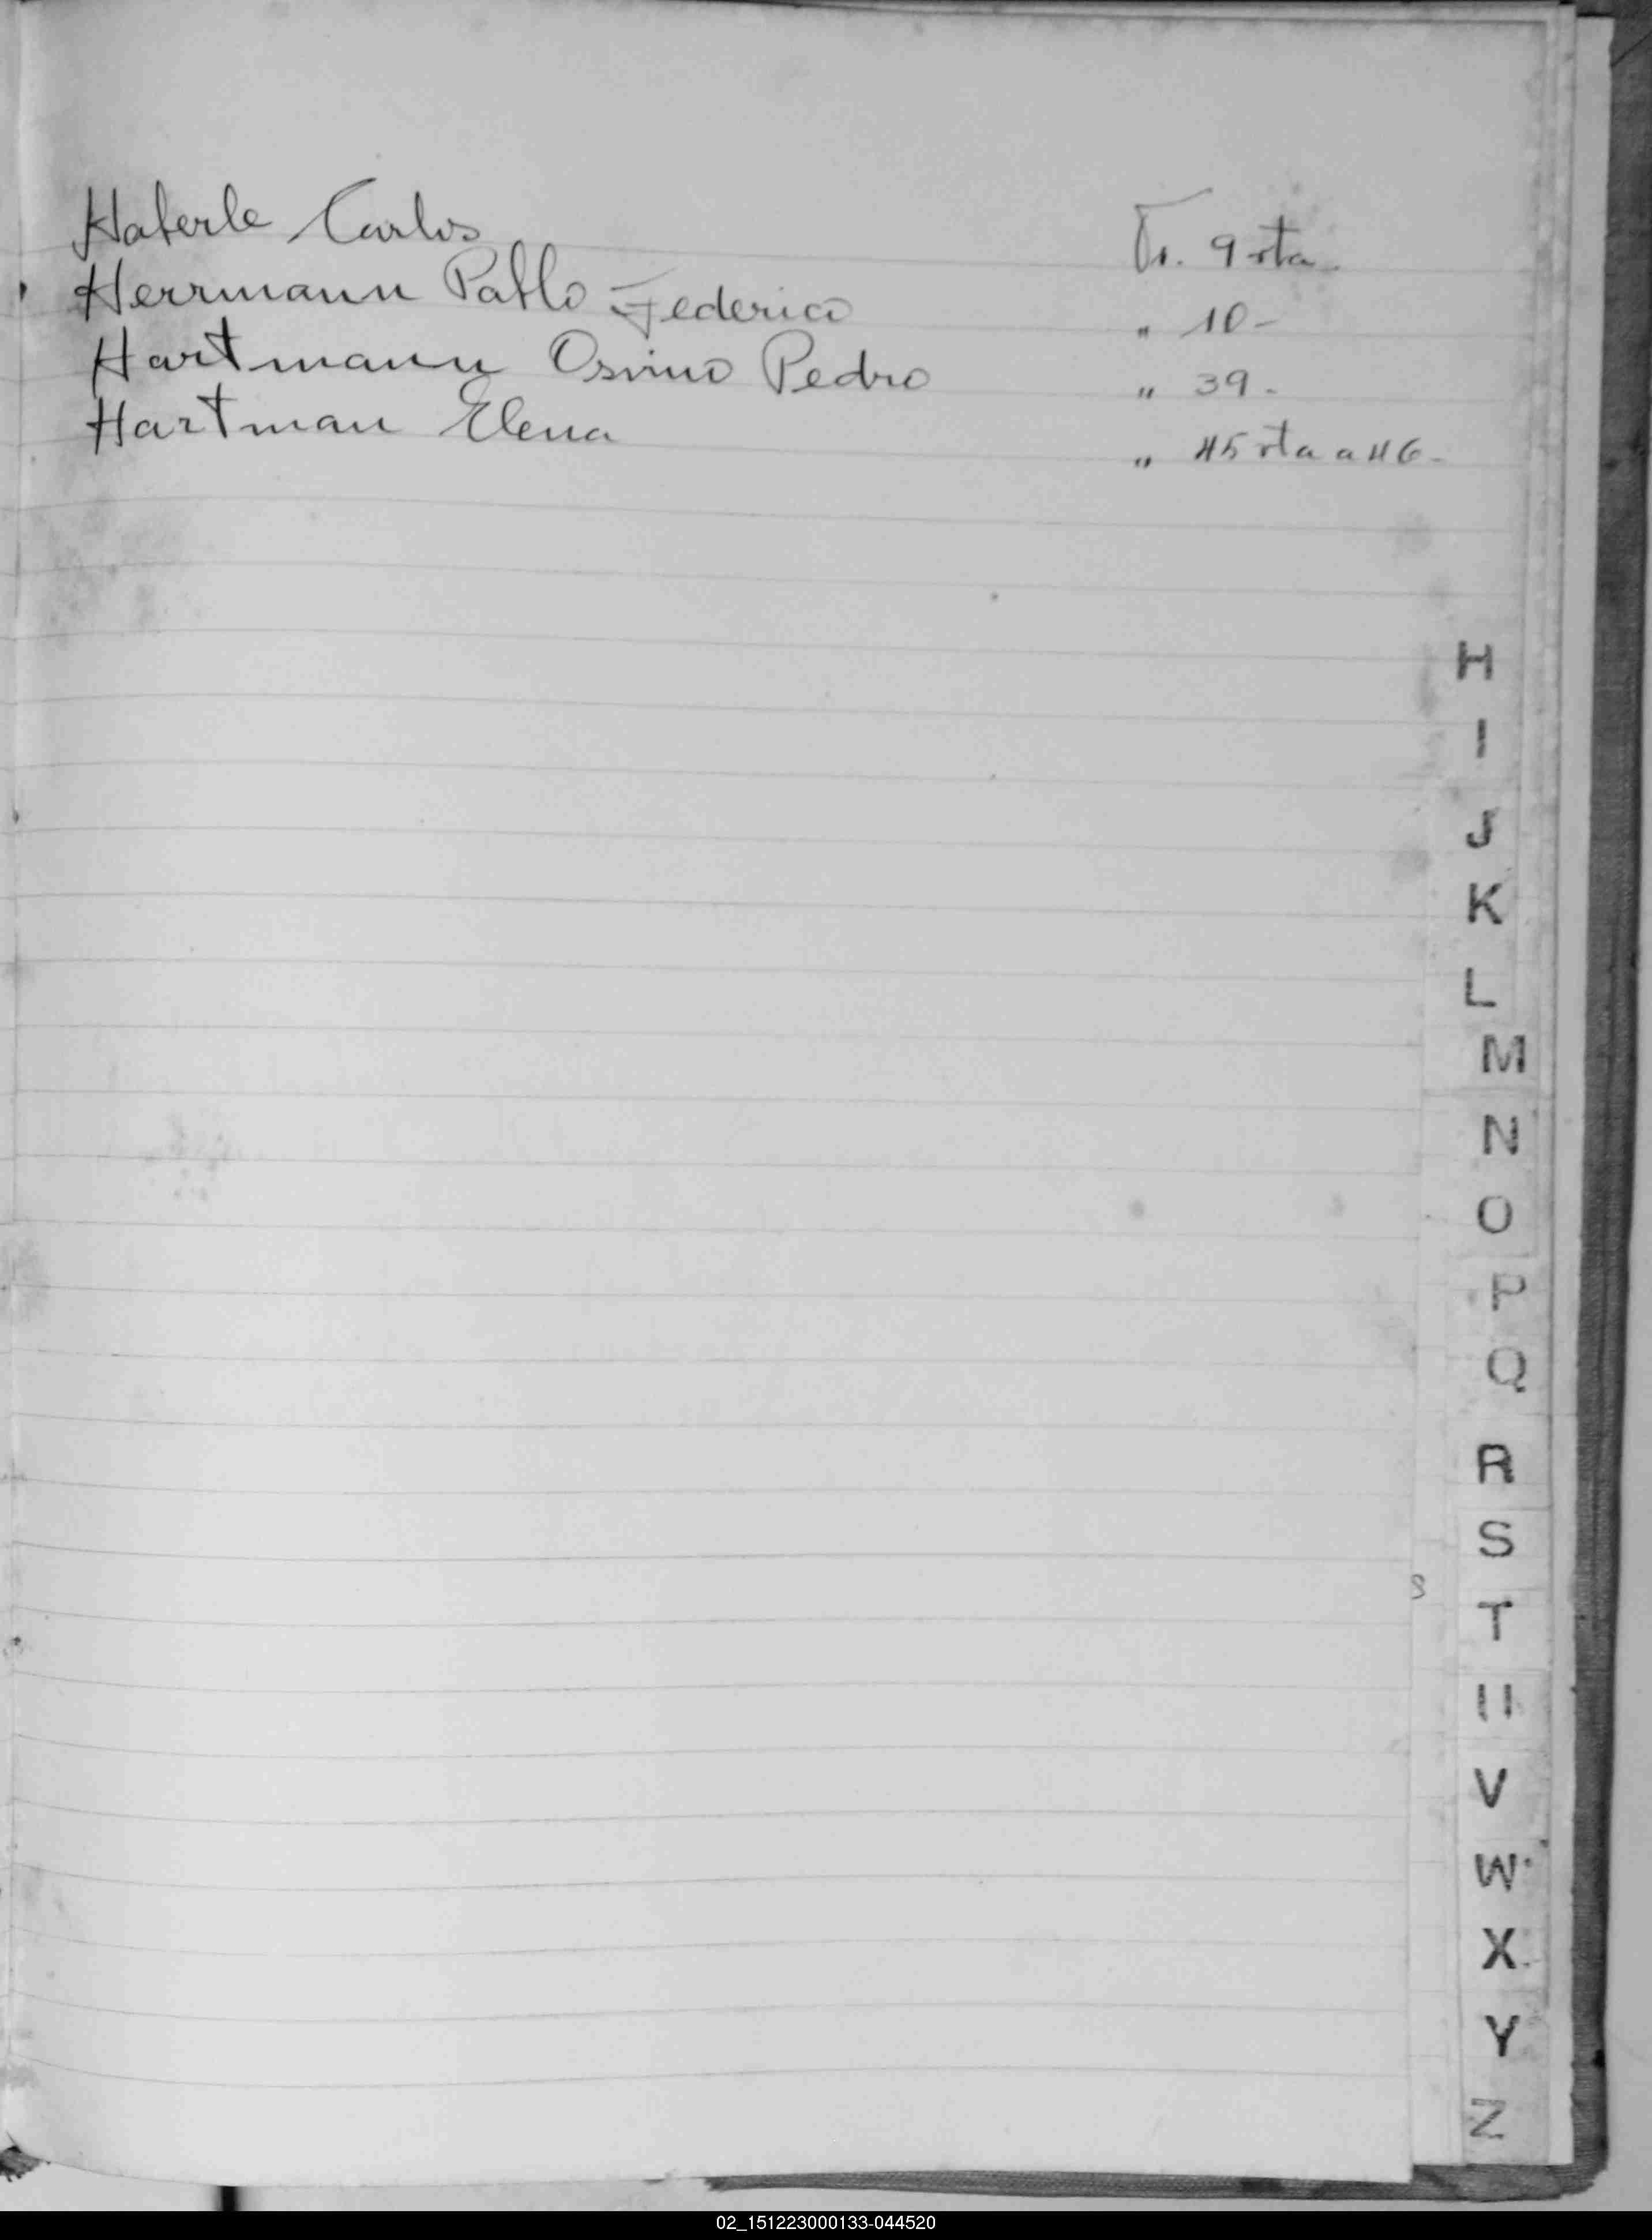 Haberle Carlos Fs. 9 vta.
Herrmann Pablo Federico " 10-
Hartmann Osvino Pedro " 39-
Hartman Elena " 45 vta a 46-
H
I
J
K
L
M
N
O
P
Q
R
S
S
T
U
V
W
X
Y
Z
02_151223000133-044520